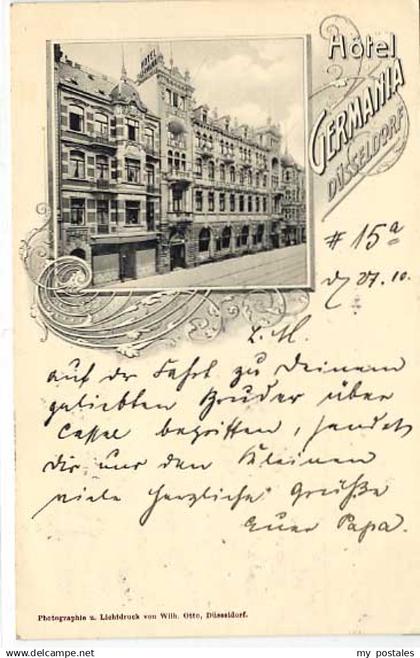 Hôtel
GERMANIA
DÜSSELDORF
HOTEL
# 15a
27. 10.
L. M.
auf der Fahrt zu Deinem
geliebten Bruder über
Cassel begriffen, sendet
Dir und den Kleinen
viele herzliche Grüße
Euer Papa.
Photographie u. Lichtdruck von Wilh. Otto, Düsseldorf.
www.mypostales.com